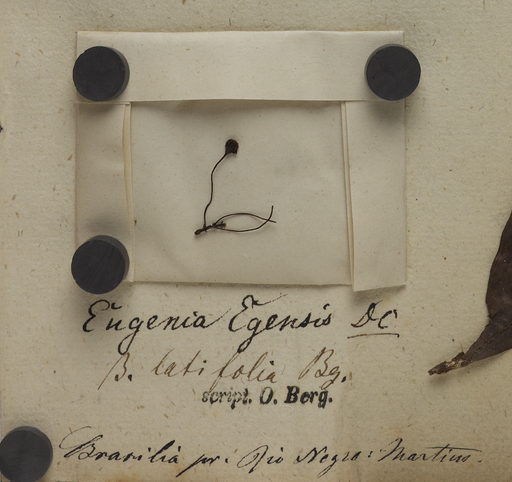 Eugenia Egensis DC
β. latifolia Bg.
script. O. Berg.
Brasilia pr. Rio Negro: Martius.